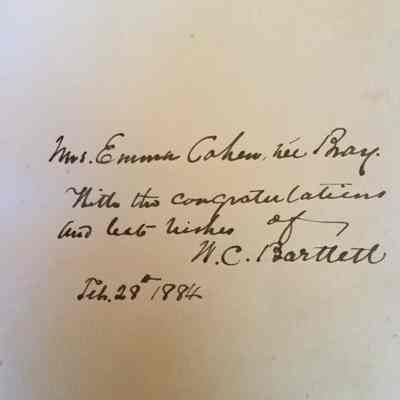 Mrs. Emma Cohen, née Bray.
With the congratulations
and best wishes of
W. C. Bartlett
Feb. 28th 1884